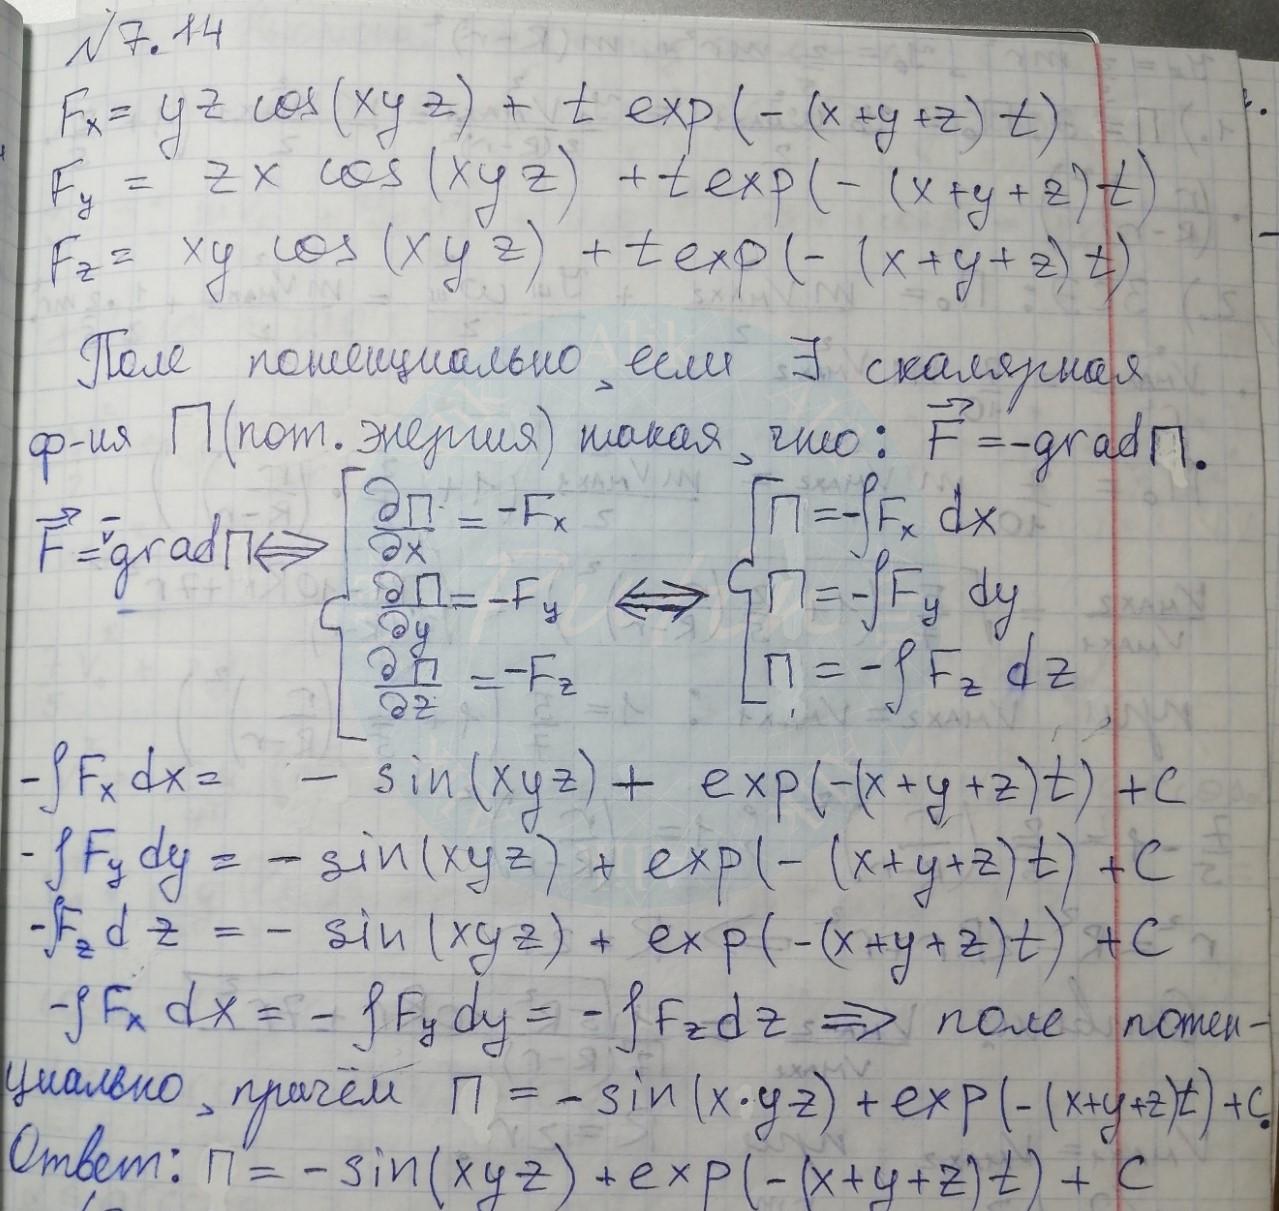 №7.14
Fx = yz cos(xyz) + t exp(-(x+y+z)t)
Fy = zx cos(xyz) + t exp(-(x+y+z)t)
Fz = xy cos(xyz) + t exp(-(x+y+z)t)
Поле потенциально, если ∃ скалярная
ф-ия П(пот. энергия) такая, что: F⃗ = -grad П.
F⃗ = -grad П ⟺ { ∂П/∂x = -Fx ⟺ { П = -∫Fx dx
∂П/∂y = -Fy П = -∫Fy dy
∂П/∂z = -Fz П = -∫Fz dz
-∫Fx dx = - sin(xyz) + exp(-(x+y+z)t) + C
-∫Fy dy = - sin(xyz) + exp(-(x+y+z)t) + C
-∫Fz dz = - sin(xyz) + exp(-(x+y+z)t) + C
-∫Fx dx = -∫Fy dy = -∫Fz dz ⟹ поле потен-
циально, причём П = -sin(x·yz) + exp(-(x+y+z)t) + C.
Ответ: П = -sin(xyz) + exp(-(x+y+z)t) + C